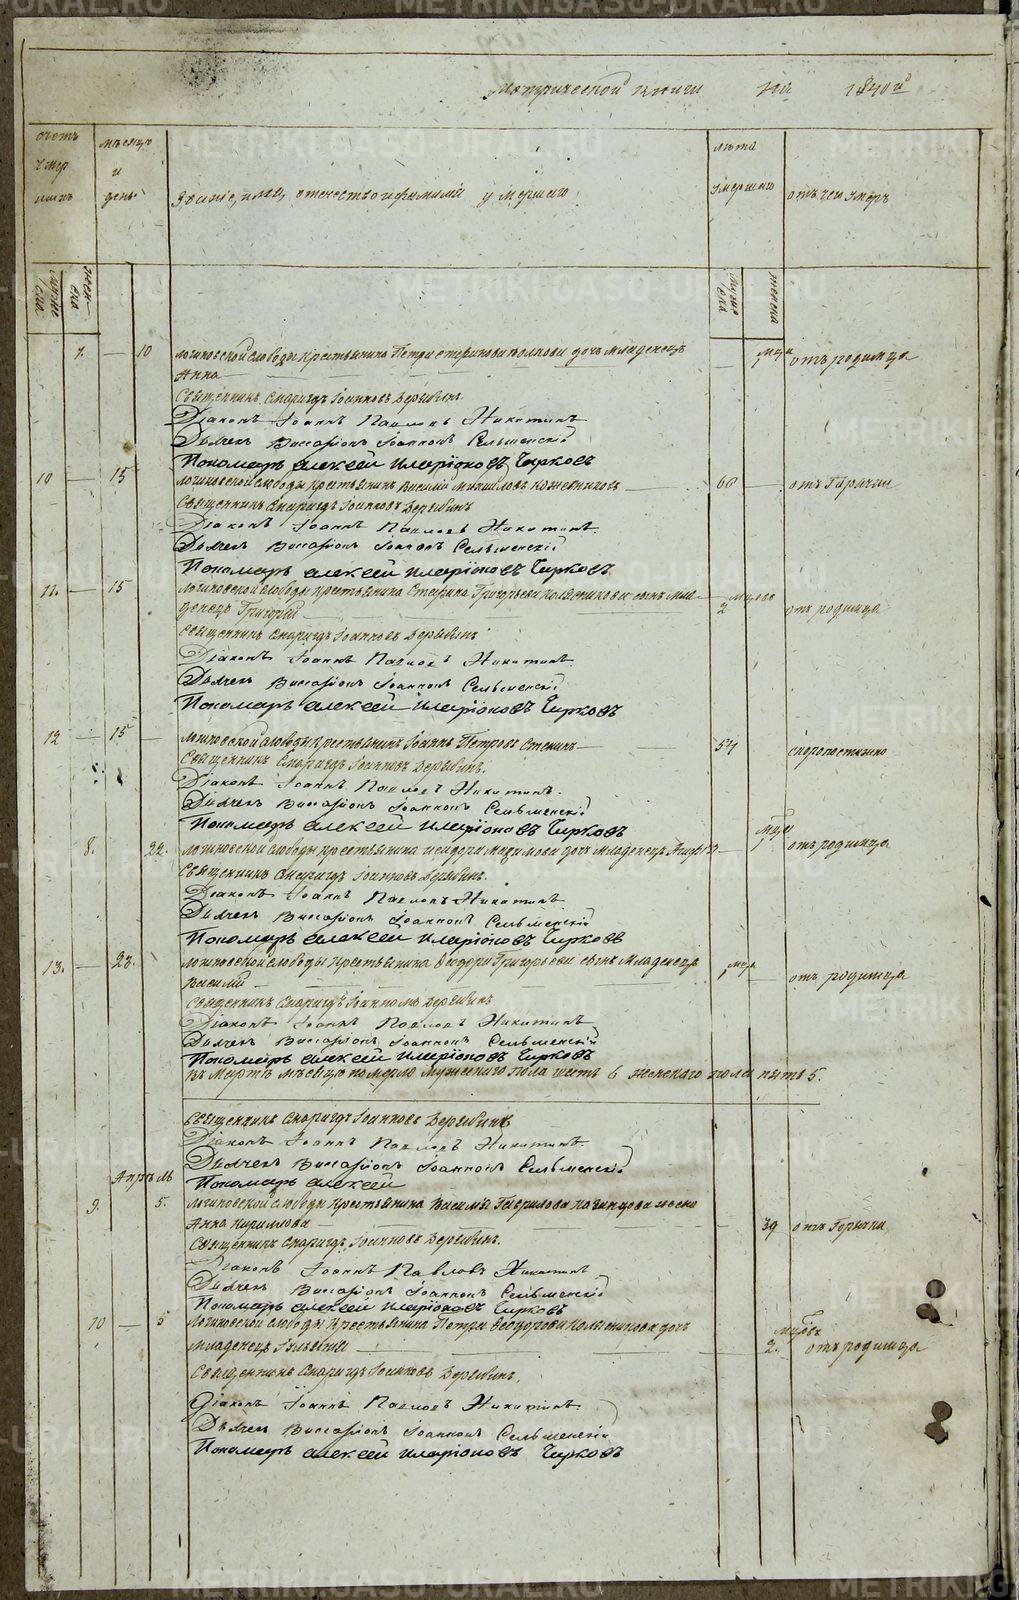 Метрической книги на 1840й
счетъ умершихъ
мѣсяцъ и день
Званіе, имя, отечество и фамилія умершаго
лѣта умершаго
отъ чего умеръ
мужеска
женска
мужеска
женска
7. 10 Логиновской слободы крестьянина Петра дочь младенецъ 1 отъ родимца
Анна
Священникъ Смарагдъ Іоанновъ Дерябинъ
Діаконъ Іоаннъ Павловъ Никитинъ
Дьячекъ Виссаріонъ Іоанновъ Сельменскій
Пономарь Алексей Иларіоновъ Чирковъ
10 15 Логиновской слободы крестьянинъ Василій Кожевниковъ 60 отъ Горячки
Священникъ Смарагдъ Іоанновъ Дерябинъ
Діаконъ Іоаннъ Павловъ Никитинъ
Дьячекъ Виссаріонъ Іоанновъ Сельменскій
Пономарь Алексей Иларіоновъ Чирковъ
11. 15 Логиновской слободы крестьянина Григорьева сынъ мла- 2 отъ родимца
денецъ Григорій
Священникъ Смарагдъ Іоанновъ Дерябинъ
Діаконъ Іоаннъ Павловъ Никитинъ
Дьячекъ Виссаріонъ Іоанновъ Сельменскій
Пономарь Алексей Иларіоновъ Чирковъ
12 15 Логиновской слободы крестьянинъ Іоаннъ Петровъ 54 скоропостижно
Священникъ Смарагдъ Іоанновъ Дерябинъ.
Діаконъ Іоаннъ Павловъ Никитинъ.
Дьячекъ Виссаріонъ Іоанновъ Сельменскій
Пономарь Алексей Иларіоновъ Чирковъ
8. 22. Логиновской слободы крестьянина дочь младенецъ 1 отъ родимца
Священникъ Смарагдъ Іоанновъ Дерябинъ.
Діаконъ Іоаннъ Павловъ Никитинъ
Дьячекъ Виссаріонъ Іоанновъ Сельменскій
Пономарь Алексей Иларіоновъ Чирковъ
13. 23. Логиновской слободы крестьянина Григорьева сынъ младенецъ 1 отъ родимца
Василій
Священникъ Смарагдъ Іоанновъ Дерябинъ
Діаконъ Іоаннъ Павловъ Никитинъ
Дьячекъ Виссаріонъ Іоанновъ Сельменскій
Пономарь Алексей Иларіоновъ Чирковъ
въ Мартѣ мѣсяцѣ померло мужескаго пола шесть 6 женскаго пола пять 5.
Священникъ Смарагдъ Іоанновъ Дерябинъ
Діаконъ Іоаннъ Павловъ Никитинъ
Дьячекъ Виссаріонъ Іоанновъ Сельменскій
Апрѣль
Пономарь Алексей
9. 5. Логиновской слободы крестьянина Василья Гаврилова жена
Анна Кирилова 39 отъ Горячки
Священникъ Смарагдъ Іоанновъ Дерябинъ.
Діаконъ Іоаннъ Павловъ Никитинъ
Дьячекъ Виссаріонъ Іоанновъ Сельменскій
Пономарь Алексей Иларіоновъ Чирковъ
10 5 Логиновской слободы крестьянина Петра Ѳеодорова дочь
младенецъ 2. отъ родимца
Священникъ Смарагдъ Іоанновъ Дерябинъ.
Діаконъ Іоаннъ Павловъ Никитинъ.
Дьячекъ Виссаріонъ Іоанновъ Сельменскій
Пономарь Алексей Иларіоновъ Чирковъ
METRIKI.GASO-URAL.RU